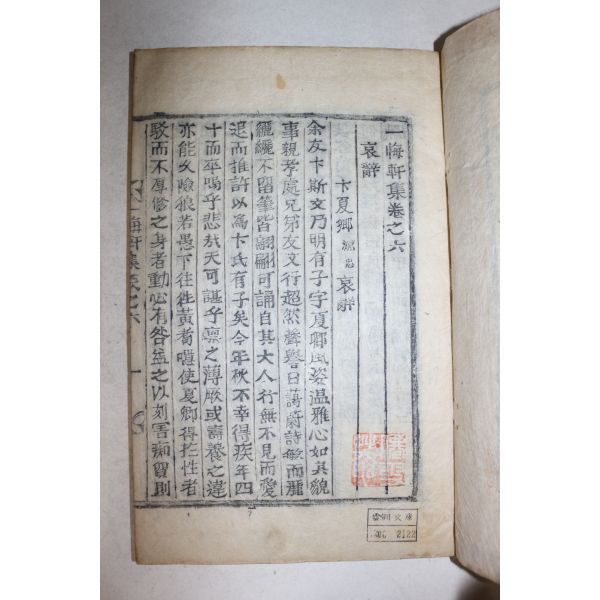 一悔軒集卷之六
哀辭
卞夏鄉源忠哀辭
余友卞斯文乃明有子字夏鄉風姿温雅心如其貌
事親孝處兄弟友文行超然聲譽日藹蔚詩敏而麗
纚纚不留筆皆翩翩可誦自其大人行無不見而愛
退而推許以爲卞氏有子矣今年秋不幸得疾年四
十而卒嗚乎悲哉天可諶乎禀之薄厥或壽養之違
亦能久險狼若愚下往往黃耉嗟使夏鄉得抡性者
駁而不厚修之身者動必有咎益之以刻害痴貿則
一悔軒集卷之六
一
雲田文庫
2122